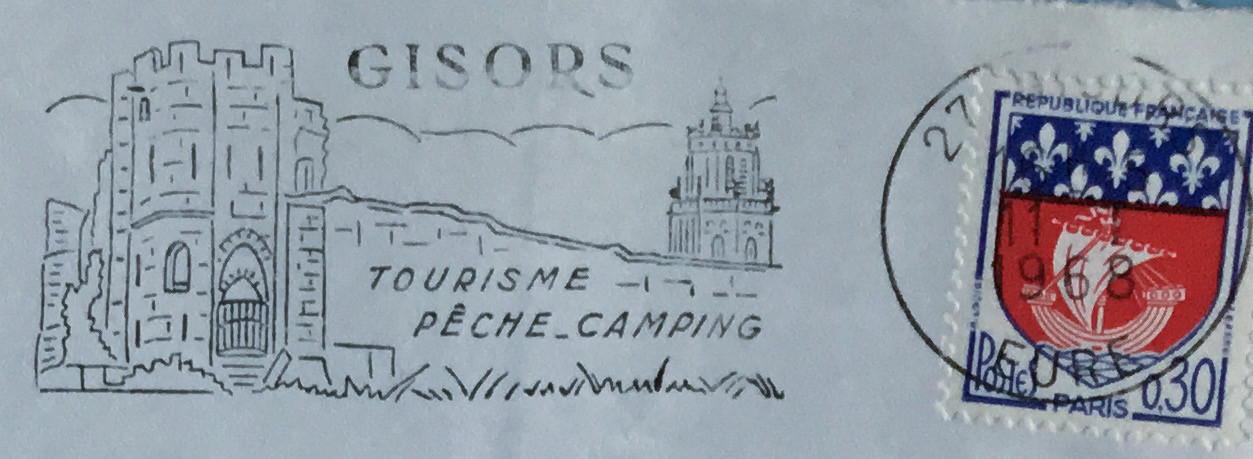 GISORS
TOURISME
PÊCHE_CAMPING
27
REPUBLIQUE FRANÇAISE
1968
EURE
POSTES
PARIS
0,30